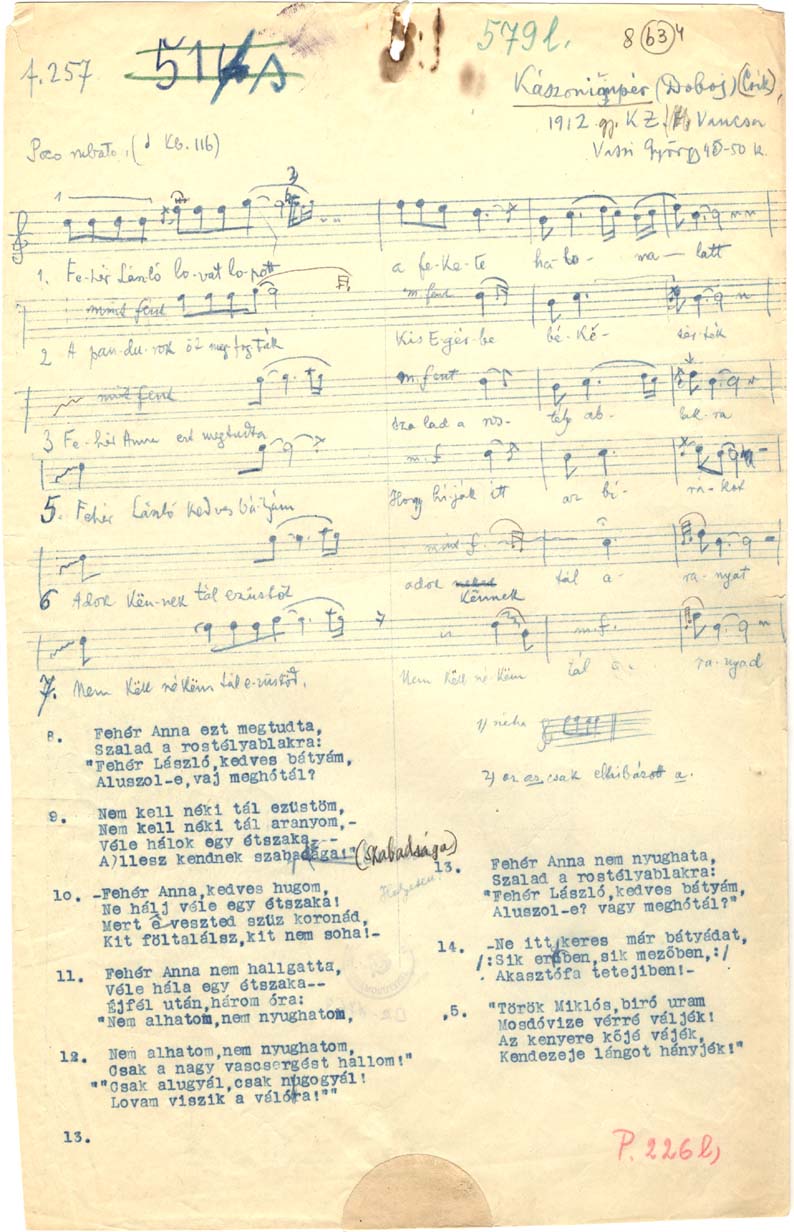 f.257
579 l.
8 63 4
Kászonimpér (Doboj) (Csik)
1912 gy. K Z.
Vassi György 48-50 é.
Poco rubato,
1. Fe-hér László lo-vat lo-pott a fe-ke-te ha-lo- ma-latt
mint fent
m. fent
2 A pan-du-rok őt meg fogták Kis Egér-be bé-ké- sér-ték
mint fent
m. fent
3 Fe-hér Anna ezt megtudta sza lad a ros- tély ab- lak-ra
m. f.
5. Fehér László kedves bá-tyám Hogy hi-ják itt az bí- rá-kot
mint f.
6 Adok kën-nek tál ezüstöt adok kënnek tál a- ra-nyat
m. f.
7. Nem këll né këm tál e-züstöd, Nem këll né këm tál a- ra-nyad
1) néha
2) az az csak elhibázott a.
8. Fehér Anna ezt megtudta,
Szalad a rostélyablakra:
"Fehér László,kedves bátyám,
Aluszol-e,vaj meghótál?
9. Nem kell néki tál ezüstöm,
Nem kell néki tál aranyom,-
Véle hálok egy étszaka---
A)llesz kendnek szabadága!" (szabadsága)
10. -Fehér Anna,kedves hugom,
Ne hálj véle egy étszaka!
Mert é veszted szüz koronád,
Kit föltalálsz,kit nem soha!-
11. Fehér Anna nem hallgatta,
Véle hála egy étszaka--
Éjfél után,három óra:
"Nem alhatom,nem nyughatom,
12. Nem alhatom,nem nyughatom,
Csak a nagy vascsergést hallom!"
""Csak alugyál,csak nyugogyál!
Lovam viszik a válóra!""
13.
13. Fehér Anna nem nyughata,
Szalad a rostélyablakra:
"Fehér László,kedves bátyám,
Aluszol-e? vagy meghótál?"
14. -Ne itt keres már bátyádat,
/:Sik erdőben,sik mezőben,:/
Akasztófa tetejiben!-
,5. "Török Miklós,biró uram
Mosdóvize vérré váljék!
Az kenyere kőjé vájék,
Kendezeje lángot hányjék!"
P. 226 l,